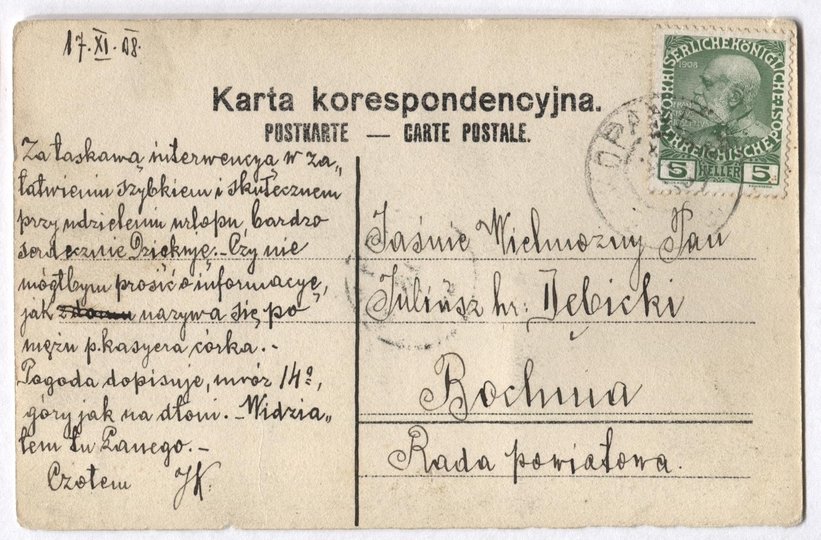 17.XI.08.
Karta korespondencyjna.
POSTKARTE — CARTE POSTALE.
Za łaskawą interwencyą w za„
łatwieniu szybkiem i skutecznem
przy udzieleniu urlopu, bardzo
serdecznie Dziękuję. – Czy nie
mógłbym prosić o informacyę,
jak nazywa się po
mężu p. kasyera córka. –
Pogoda dopisuje, mróz 14°,
góry jak na dłoni. – Widzia„
łem tu Panego. –
Czołem JK.
KAISERLICHE KÖNIGLICHE ÖSTERREICHISCHE POST
1908
5 HELLER 5
Jaśnie Wielmożny Pan
Juliusz hr. Dębicki
Bochnia
Rada powiatowa.